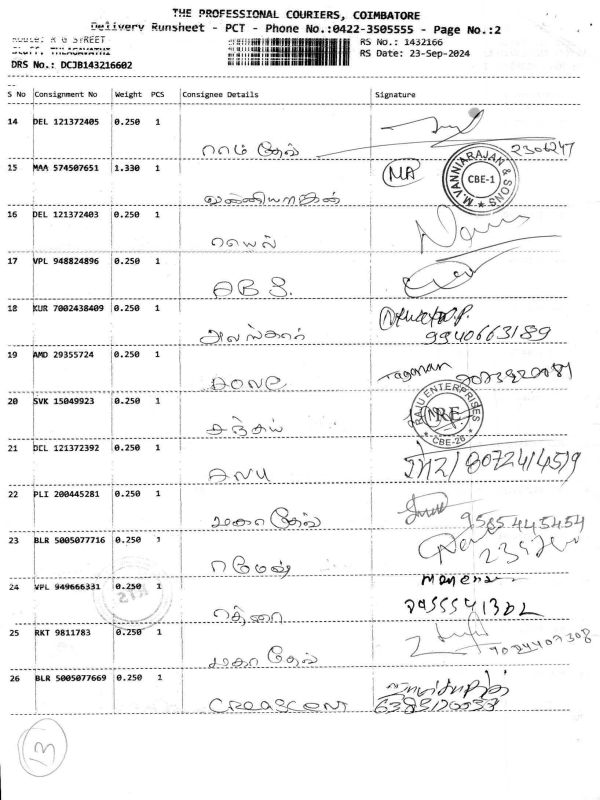 THE PROFESSIONAL COURIERS, COIMBATORE
Delivery Runsheet - PCT - Phone No.:0422-3505555 - Page No.:2
Route: R G STREET
RS No.: 1432166
Staff: THILAGAVATHI
RS Date: 23-Sep-2024
DRS No.: DCJB143216602
S No Consignment No Weight PCS Consignee Details Signature
14 DEL 121372405 0.250 1
ராம் தேவ் 2306247
15 MAA 574507651 1.330 1 MA M.VANNIARAJAN & SONS CBE-1
வன்னியராஜன்
16 DEL 121372403 0.250 1
17 VPL 948824896 0.250 1
ABS.
18 KUR 7002438409 0.250 1
அலங்கார் 9940663189
19 AMD 29355724 0.250 1
AONE
20 SVK 15049923 0.250 1 RAJU ENTERPRISES RE CBE-26
சஞ்சய்
21 DEL 121372392 0.250 1 8072414519
ANU
22 PLI 200445281 0.250 1
மகா தேவ் 9585445454
23 BLR 5005077716 0.250 1
ரமேஷ்
24 VPL 949666331 0.250 1
ரத்னா
25 RKT 9811783 0.250 1
மகா தேவ் 9024407308
26 BLR 5005077669 0.250 1
CREASCENT
13